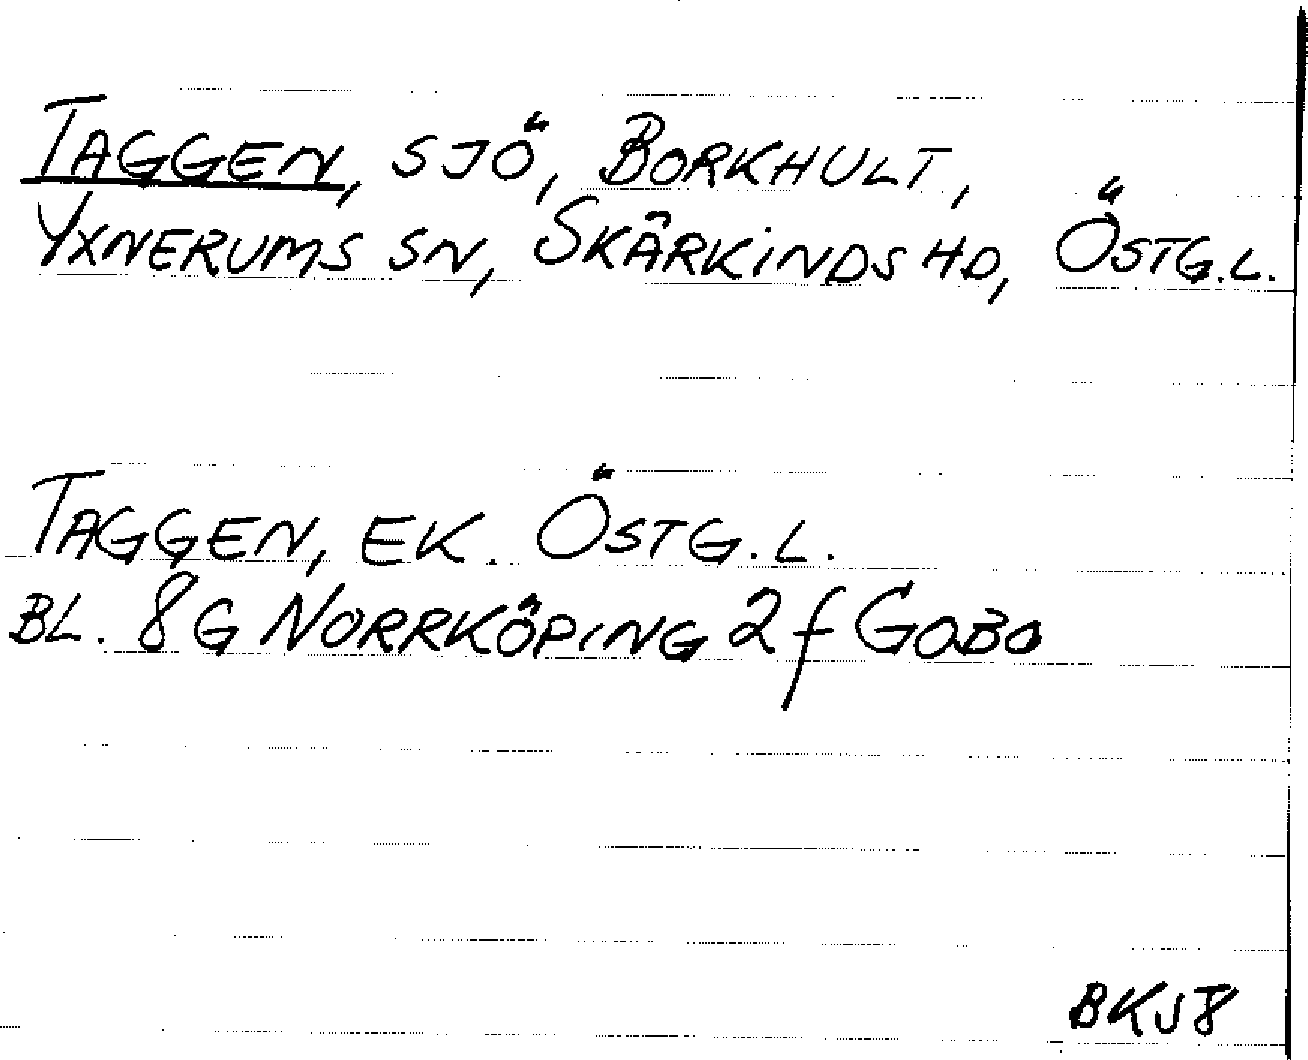 TAGGEN, SJÖ, BORKHULT,
YXNERUMS SN, SKÄRKINDS HD, ÖSTG.L.
TAGGEN, EK. ÖSTG.L.
BL. 8G NORRKÖPING 2f GOBO